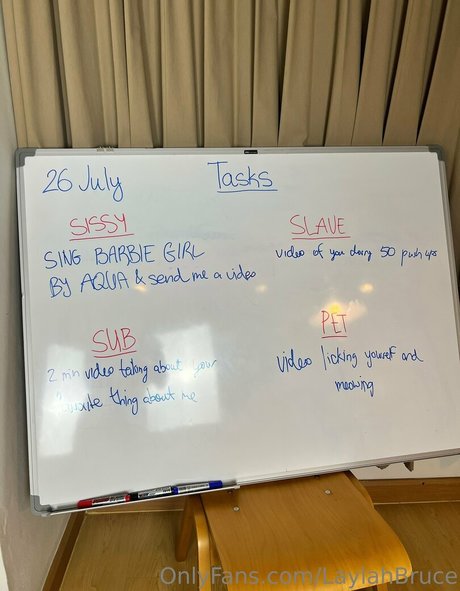 26 July
Tasks
SISSY
SING BARBIE GIRL
BY AQUA & send me a video
SLAVE
video of you doing 50 push ups
SUB
2 min video talking about your
favourite thing about me
PET
video licking yourself and
meowing
OnlyFans.com/LaylahBruce